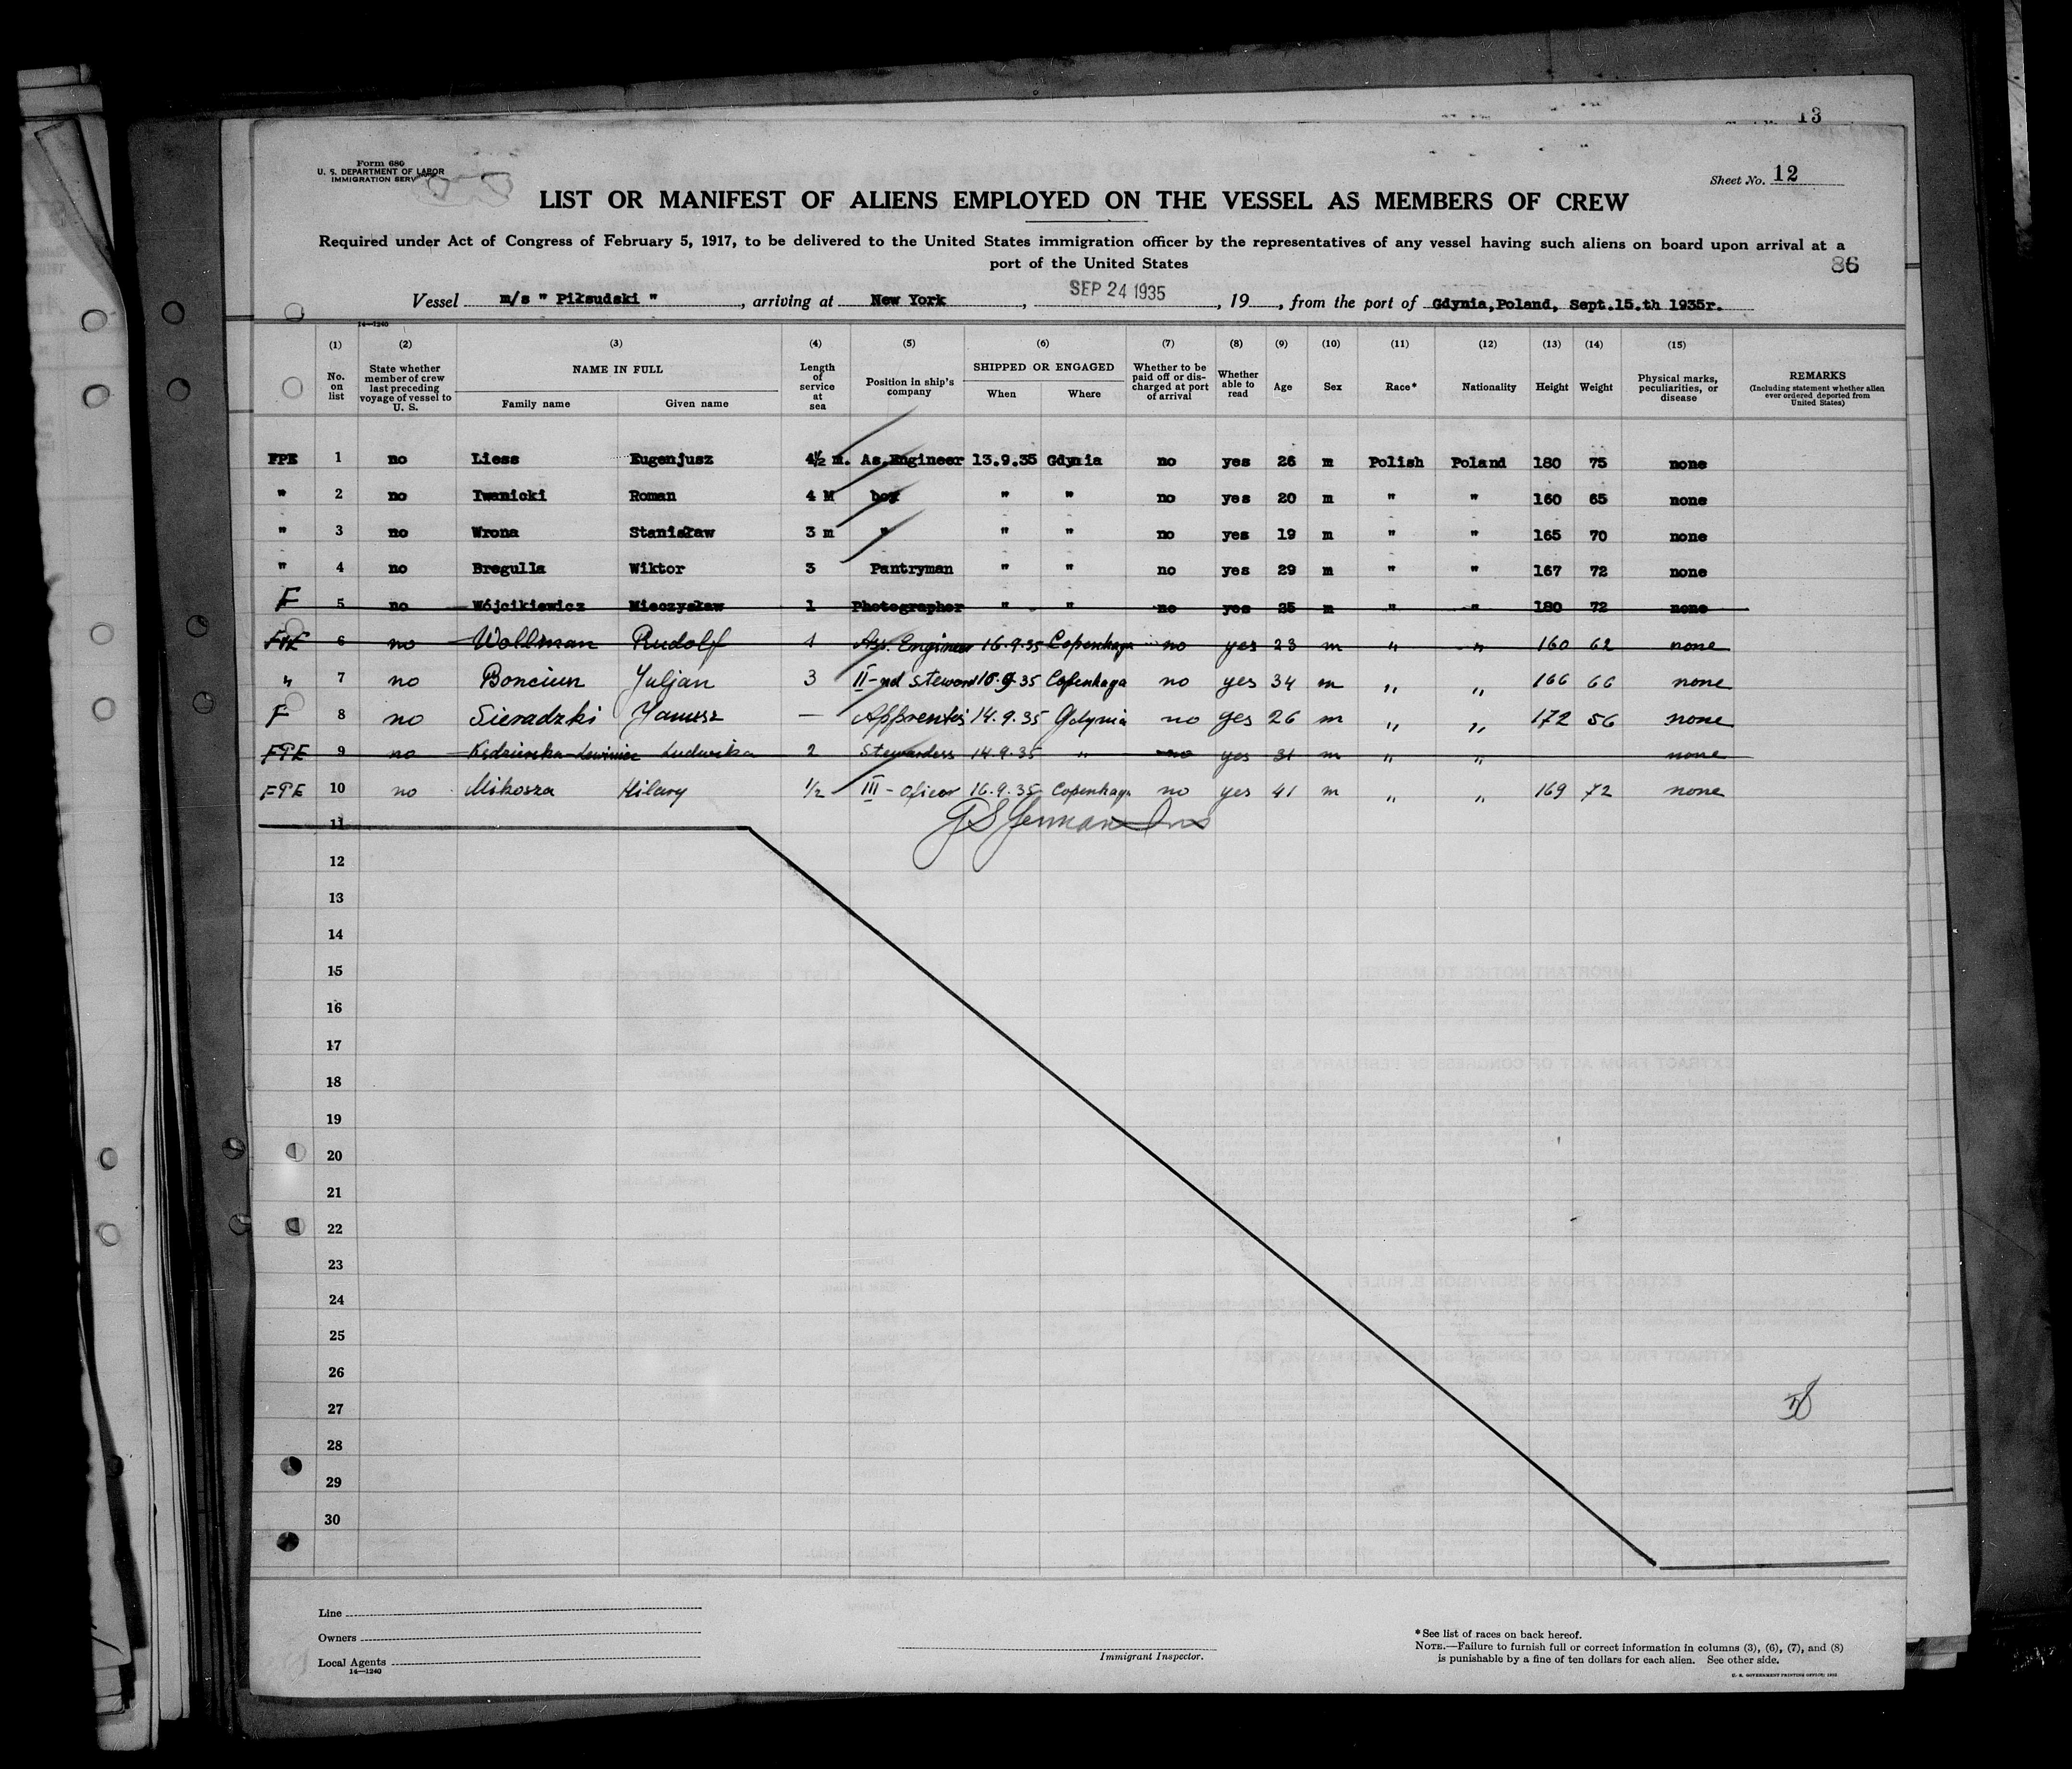 13
Form 680
U. S. DEPARTMENT OF LABOR
IMMIGRATION SERVICE
Sheet No. 12
LIST OR MANIFEST OF ALIENS EMPLOYED ON THE VESSEL AS MEMBERS OF CREW
Required under Act of Congress of February 5, 1917, to be delivered to the United States immigration officer by the representatives of any vessel having such aliens on board upon arrival at a
port of the United States
86
Vessel m/s " Piłsudski ", arriving at New York, SEP 24 1935, 19, from the port of Gdynia,Poland, Sept.15.th 1935r.
14—1240
(1) (2) (3) (4) (5) (6) (7) (8) (9) (10) (11) (12) (13) (14) (15)
No. on list State whether member of crew last preceding voyage of vessel to U. S. NAME IN FULL Family name Given name Length of service at sea Position in ship's company SHIPPED OR ENGAGED When Where Whether to be paid off or discharged at port of arrival Whether able to read Age Sex Race* Nationality Height Weight Physical marks, peculiarities, or disease REMARKS (Including statement whether alien ever ordered deported from United States)
FPE 1 no Liess Eugenjusz 4½ m. As.Engineer 13.9.35 Gdynia no yes 26 m Polish Poland 180 75 none
" 2 no Iwanicki Roman 4 M boy " " no yes 20 m " " 160 65 none
" 3 no Wrona Stanisław 3 m " " " no yes 19 m " " 165 70 none
" 4 no Bregulla Wiktor 3 Pantryman " " no yes 29 m " " 167 72 none
F 5 no Wójcikiewicz Mieczysław 1 Photographer " " no yes 25 m " " 180 72 none
FPE 6 no Wollman Rudolf 1 Ass. Engineer 16.9.35 Copenhaga no yes 23 m " " 160 62 none
" 7 no Bonciun Juljan 3 II-nd Steward 16.9.35 Copenhaga no yes 34 m " " 166 66 none
F 8 no Sieradzki Janusz — Apprentis 14.9.35 Gdynia no yes 26 m " " 172 56 none
FPE 9 no Ludwika 2 Stewardess 14.9.35 " no yes 31 m " " none
FPE 10 no Mikosza Hilary 1/2 III-oficer 16.9.35 Copenhaga no yes 41 m " " 169 72 none
11
12
13
14
15
16
17
18
19
20
21
22
23
24
25
26
27
28
29
30
Line
Owners
Local Agents
14—1240
Immigrant Inspector.
*See list of races on back hereof.
NOTE.—Failure to furnish full or correct information in columns (3), (6), (7), and (8)
is punishable by a fine of ten dollars for each alien. See other side.